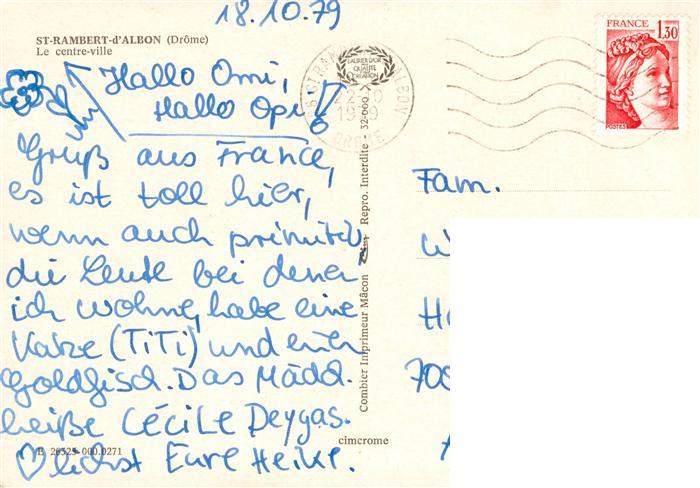 18.10.79
ST-RAMBERT-d'ALBON (Drôme)
Le centre-ville
Hallo Omi,
Hallo Opi!
Gruß aus France,
es ist toll hier,
wenn auch primitiv
die Leute bei denen
ich wohne, habe eine
Katze (TiTi) und einen
Goldfisch. Das Mädch.
heiße CÉCiLE Deygas.
lichst Eure Heike.
E 26325 000.0271
cimcrome
Combier Imprimeur Mâcon Repro. Interdite - 32-000
LAURIER D'OR
DE
QUALITÉ
CRÉATION
ALBON
22-10
19
DROME
FRANCE
1,30
POSTES
Fam.
W
H
700